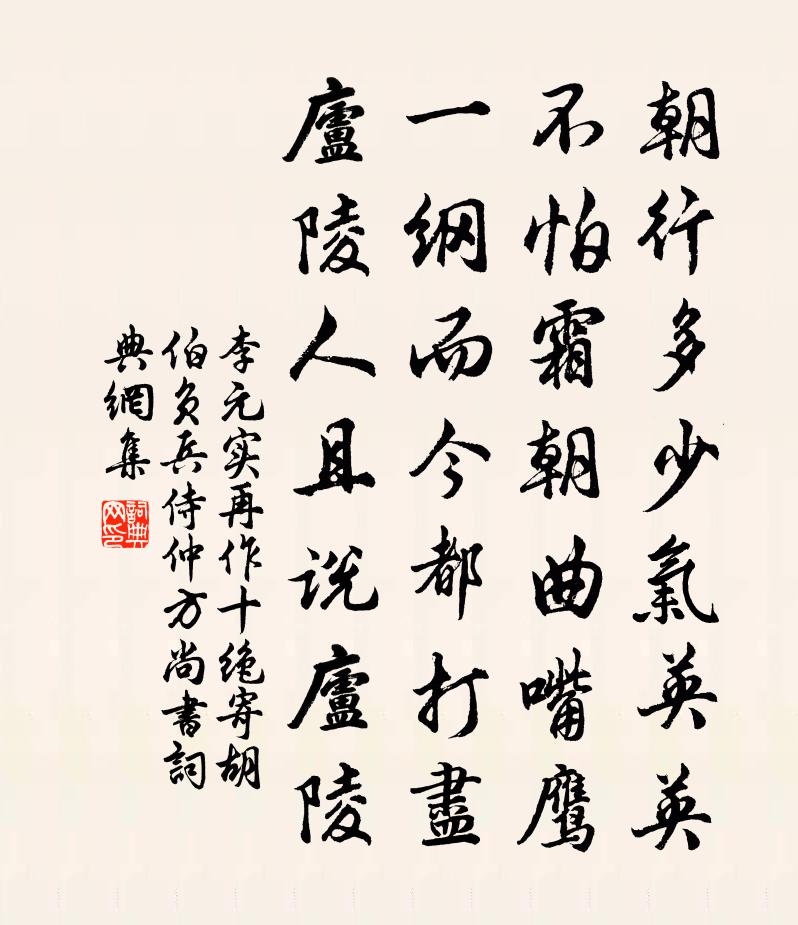 朝行多少氣英英
不怕霜朝曲嘴鷹
一纲而今都打盡
廬陵人且说廬陵
李元实再作十绝寄胡
伯负兵侍仲方尚書詞
典網集
詞典网印